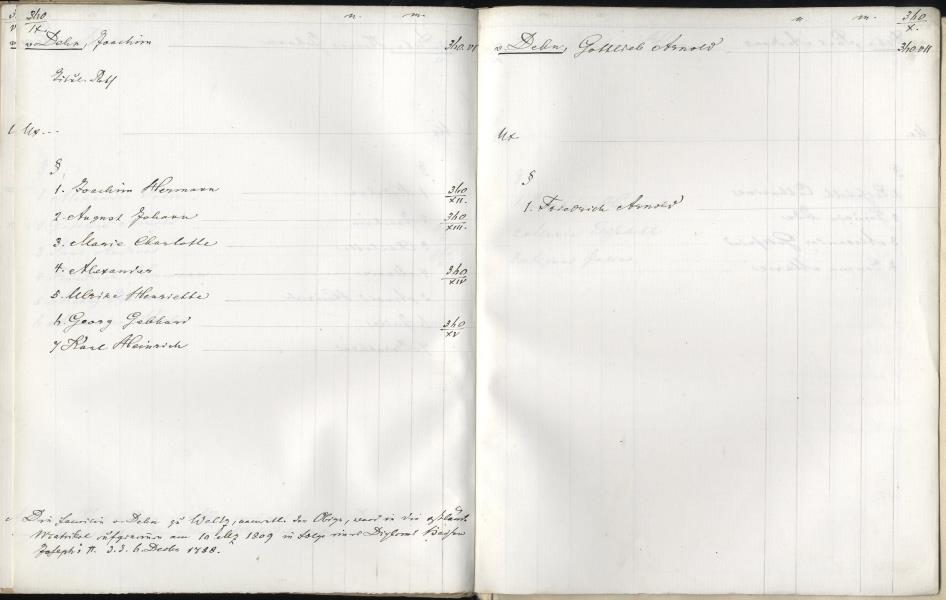 340
IX.
n. m.
v. Dehn, Joachim 340.VI
Titul. Rath
Ux...
§
1. Joachim Hermann 340
XII.
2. August Johann 340
XIII.
3. Marie Charlotte
4. Alexander 340
XIV
5. Ulrike Henriette
6. Georg Gebhard 340
XV
7 Karl Heinrich
Die Familie v. Dehn zu Weltz, namentl. der Obige, ward in die estländ.
Matrikel aufgenommen am 10 1809 in Folge eines Diploms Kaiser
Joseph's II. d.d. 6 Decbr 1788.
n m. 340
X.
v. Dehn, Gottlieb Arnold 340.VII
Ux
§
1. Friedrich Arnold